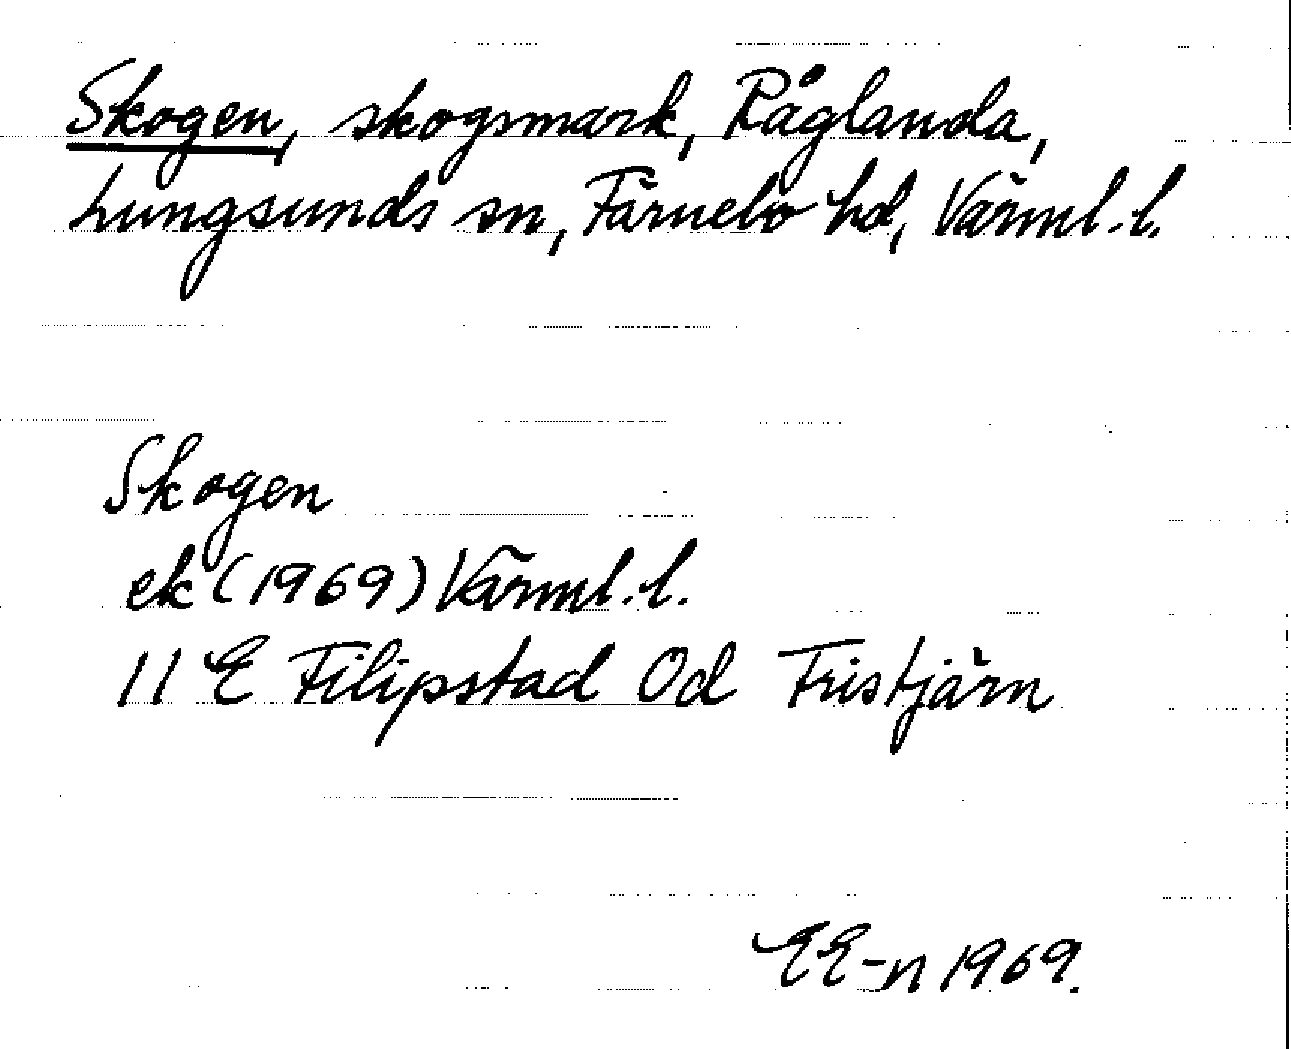 Skogen, skogsmark, Råglanda,
Lungsunds sn, Färnebo hd, Värml. l.
Skogen
ek (1969) Värml. l.
11 E Filipstad 0d Fristjärn
EE-n 1969.